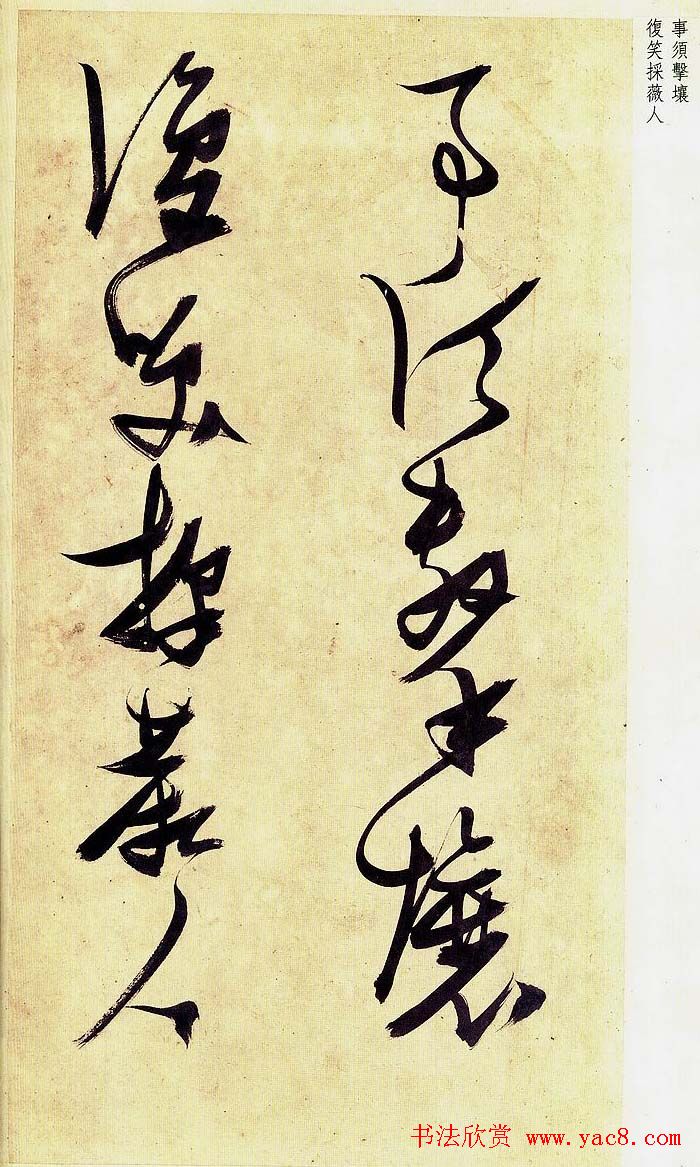 事須擊壤
復笑採薇人
事須擊壤
復笑採薇人
书法欣赏 www.yac8.com